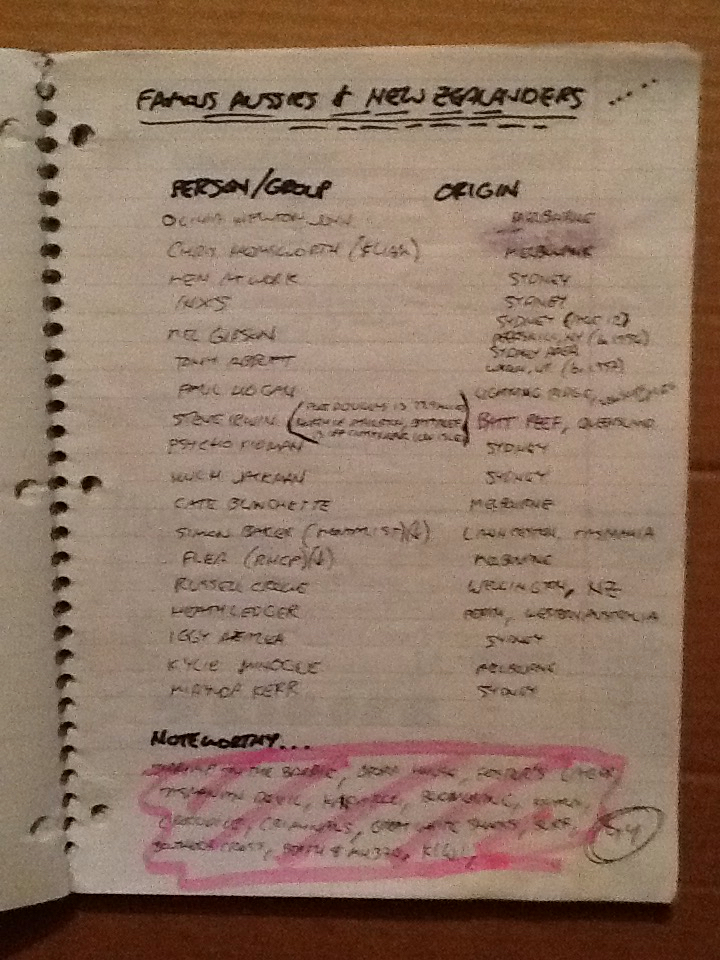 FAMOUS AUSSIES & NEW ZEALANDERS ....
PERSON/GROUP ORIGIN
OLIVIA NEWTON JOHN MELBOURNE
CHRIS HEMSWORTH (& LIAM) MELBOURNE
MEN AT WORK SYDNEY
INXS SYDNEY
SYDNEY (AGE 12)
MEL GIBSON PEEKSKILL, NY (b. 1956)
SYDNEY AREA
TONY ABBOTT (b. 1957)
PAUL HOGAN LIGHTNING RIDGE,
STEVE IRWIN BATT REEF, QUEENSLAND
PSYCHO KIDMAN SYDNEY
HUGH JACKMAN SYDNEY
CATE BLANCHETTE MELBOURNE
SIMON BAKER (MENTALIST)(↓) LAUNCESTON, TASMANIA
FLEA (RHCP)(↓) MELBOURNE
RUSSELL CROWE WELLINGTON, NZ
HEATH LEDGER PERTH, WESTERN AUSTRALIA
IGGY AZALEA SYDNEY
KYLIE MINOGUE MELBOURNE
MIRANDA KERR SYDNEY
NOTEWORTHY...
ON THE BARBIE, OPERA HOUSE, FOSTER'S
TASMANIAN DEVIL, BOOMERANG,
CROCODILE, CRIMINALS, GREAT WHITE SHARKS, SURF,
SOUTHERN CROSS, KIWI